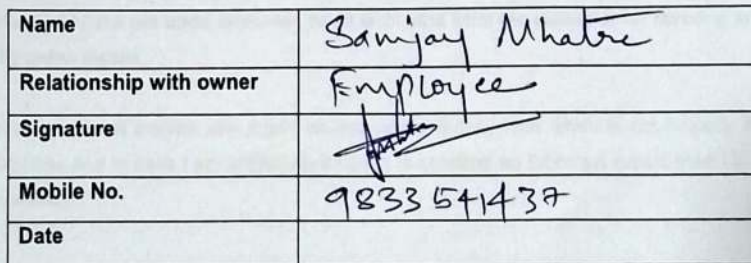 Name Sanjay Mhatre
Relationship with owner Employee
Signature
Mobile No. 9833541437
Date